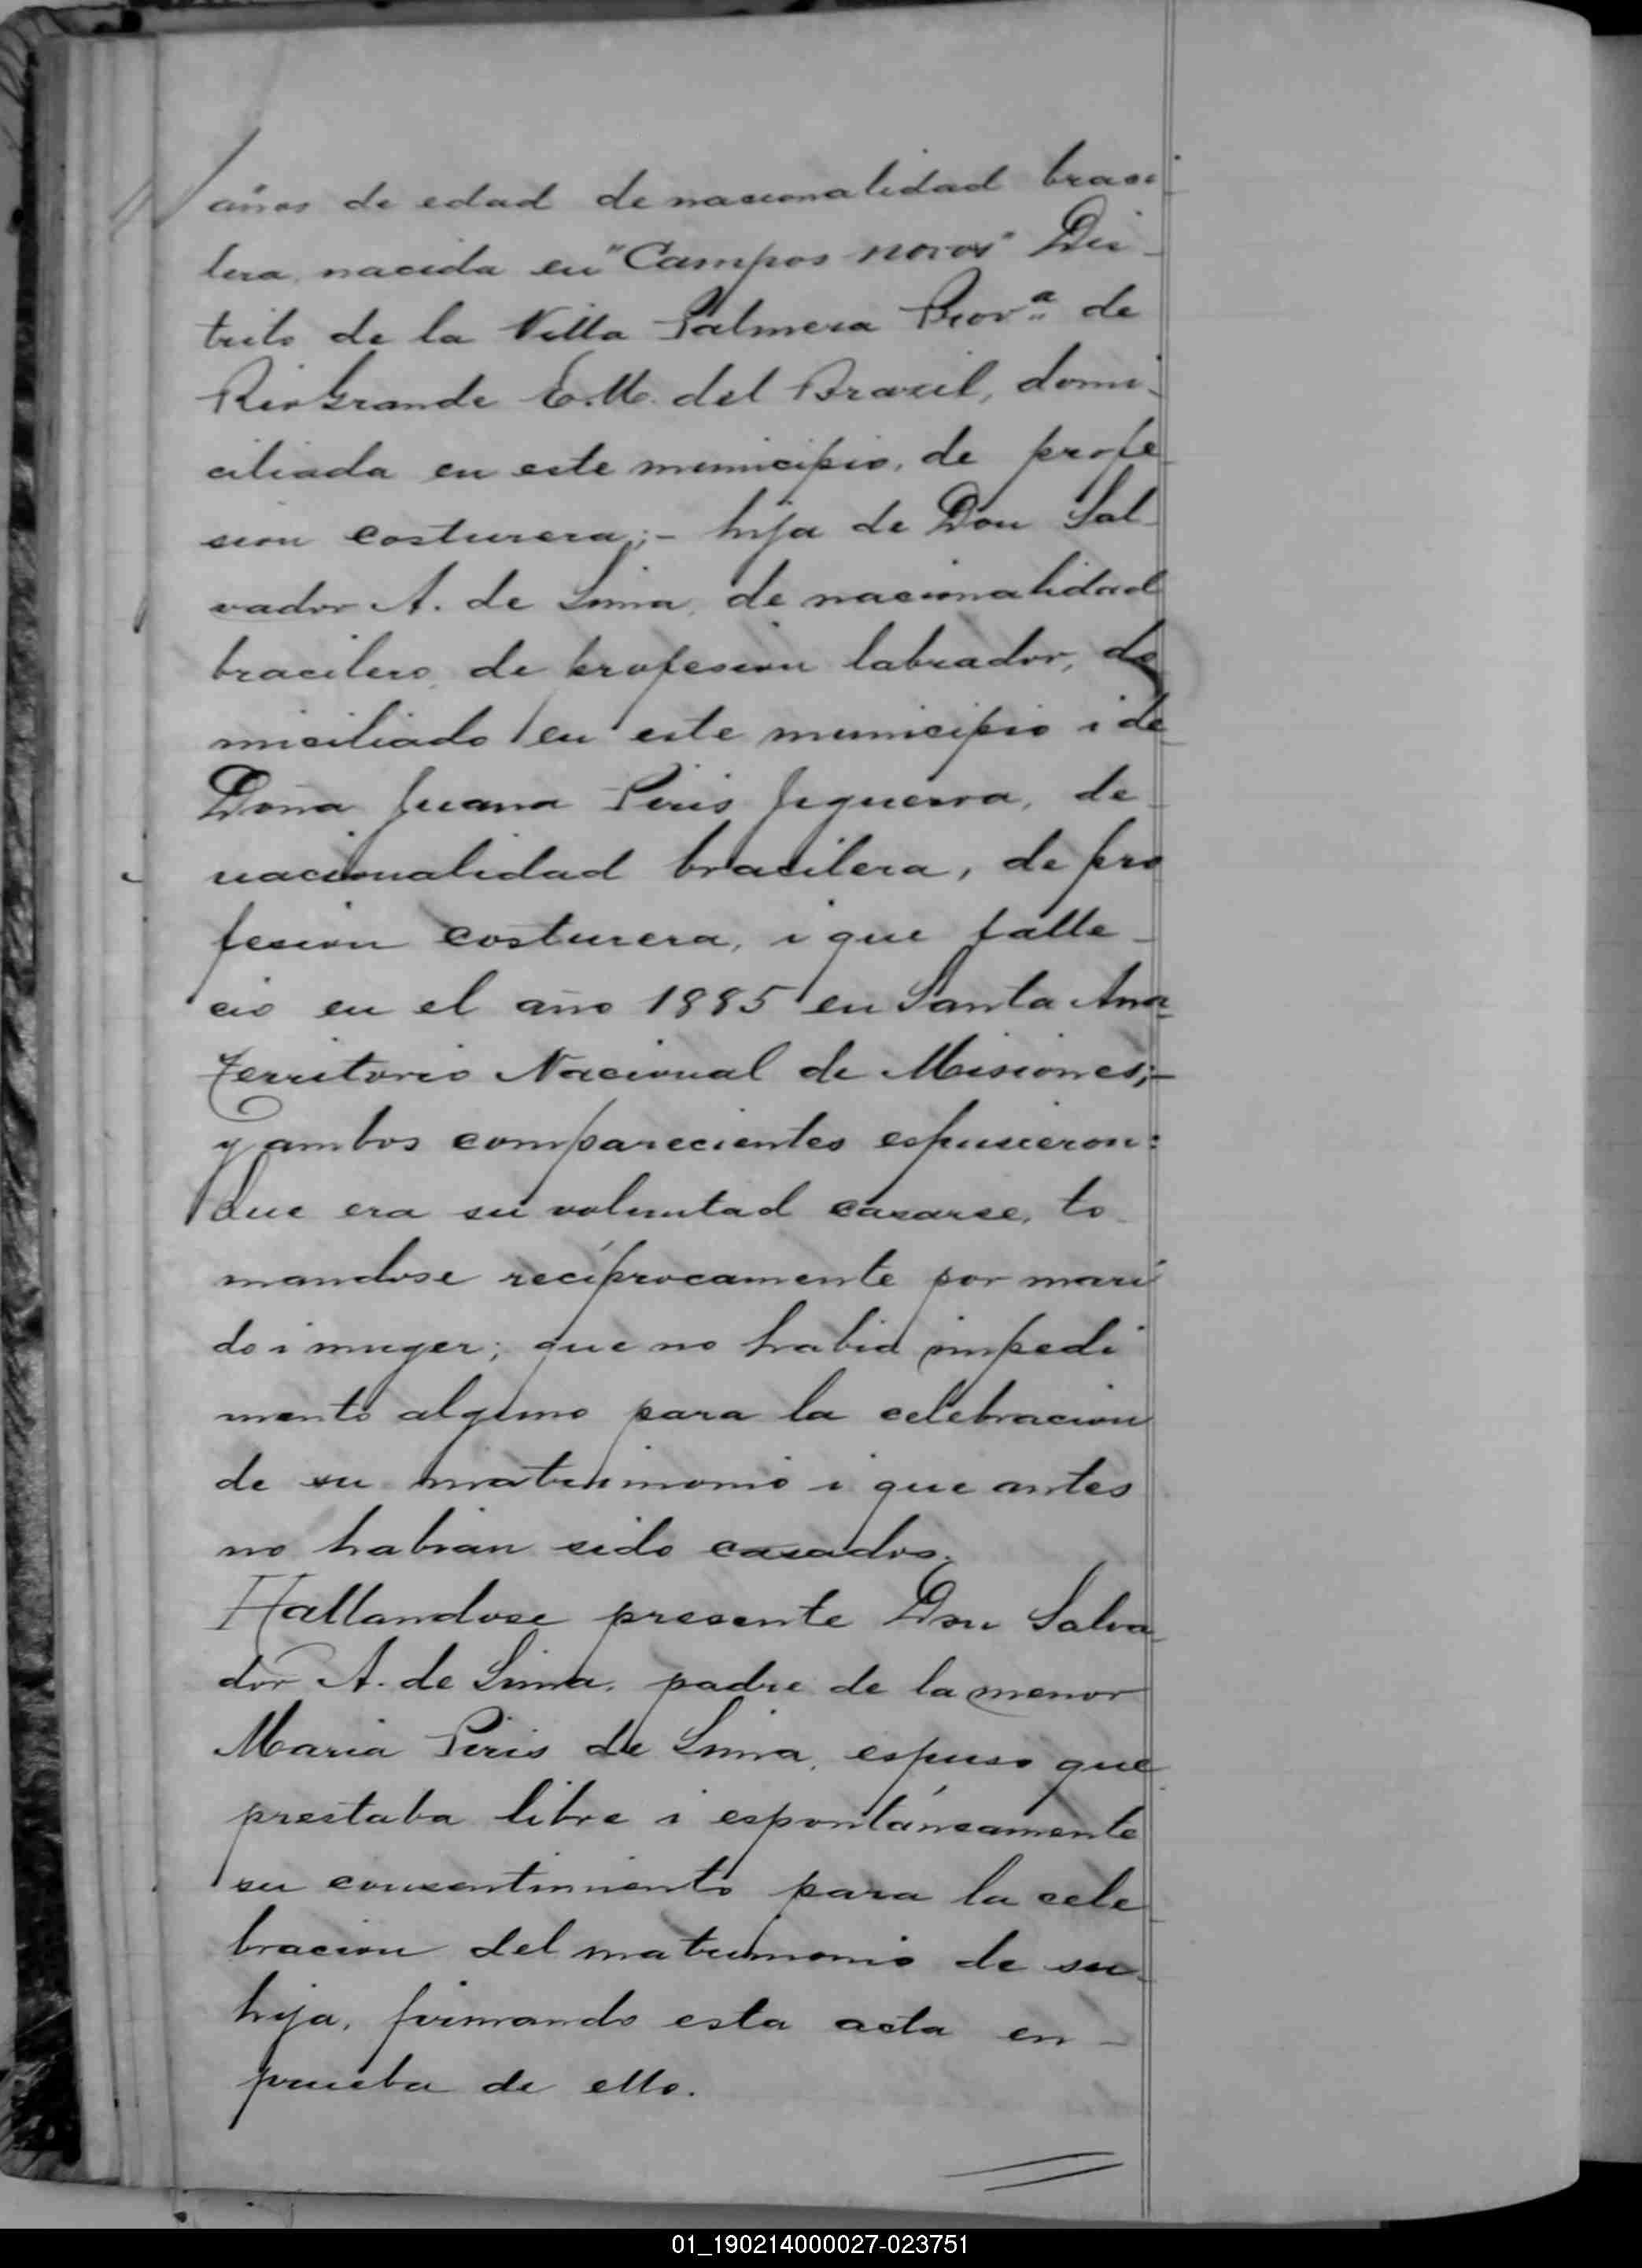 años de edad de nacionalidad brasi
lera, nacida en "Campos novos" Dis-
trito de la Villa Palmera Prov.ª de
Rio Grande E.U. del Brazil, domi-
ciliada en este municipio, de profe
sion costurera;- hija de Don Sal-
vador A. de Lima, de nacionalidad
bracilero, de profesion labrador, do
miciliado en este municipio i de
Doña Juana Piris Figuerra, de
nacionalidad bracilera, de pro
fesion costurera, i que falle-
cio en el año 1885 en Santa Ana
Territorio Nacional de Misiones;-
y ambos comparecientes espusieron:
Que era su voluntad casarse, to
mandose recíprocamente por mari
do i muger; que no habia impedi
mento alguno para la celebracion
de su matrimonio i que antes
no habian sido casados.
Hallandose presente Don Salva
dor A. de Lima, padre de la menor
Maria Piris de Lima, espuso que
prestaba libre i espontáneamente
su consentimiento para la cele
bracion del matrimonio de su
hija, firmando esta acta en -
prueba de ello.
01_190214000027-023751